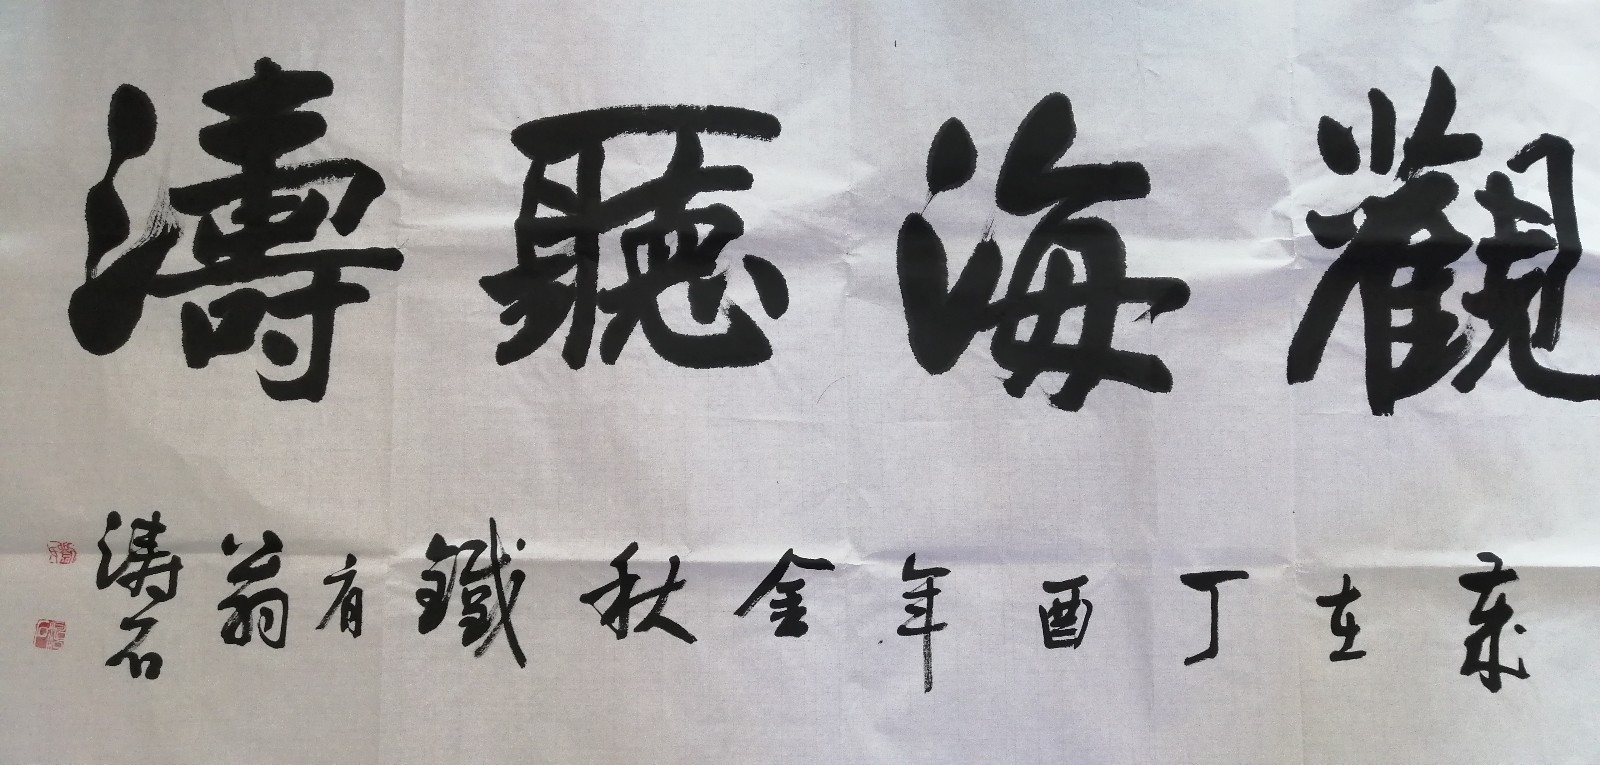 觀海聽濤
歲在丁酉年金秋鐵肩翁濤石